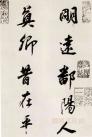 明遠鄱陽人
莫卿昔在平